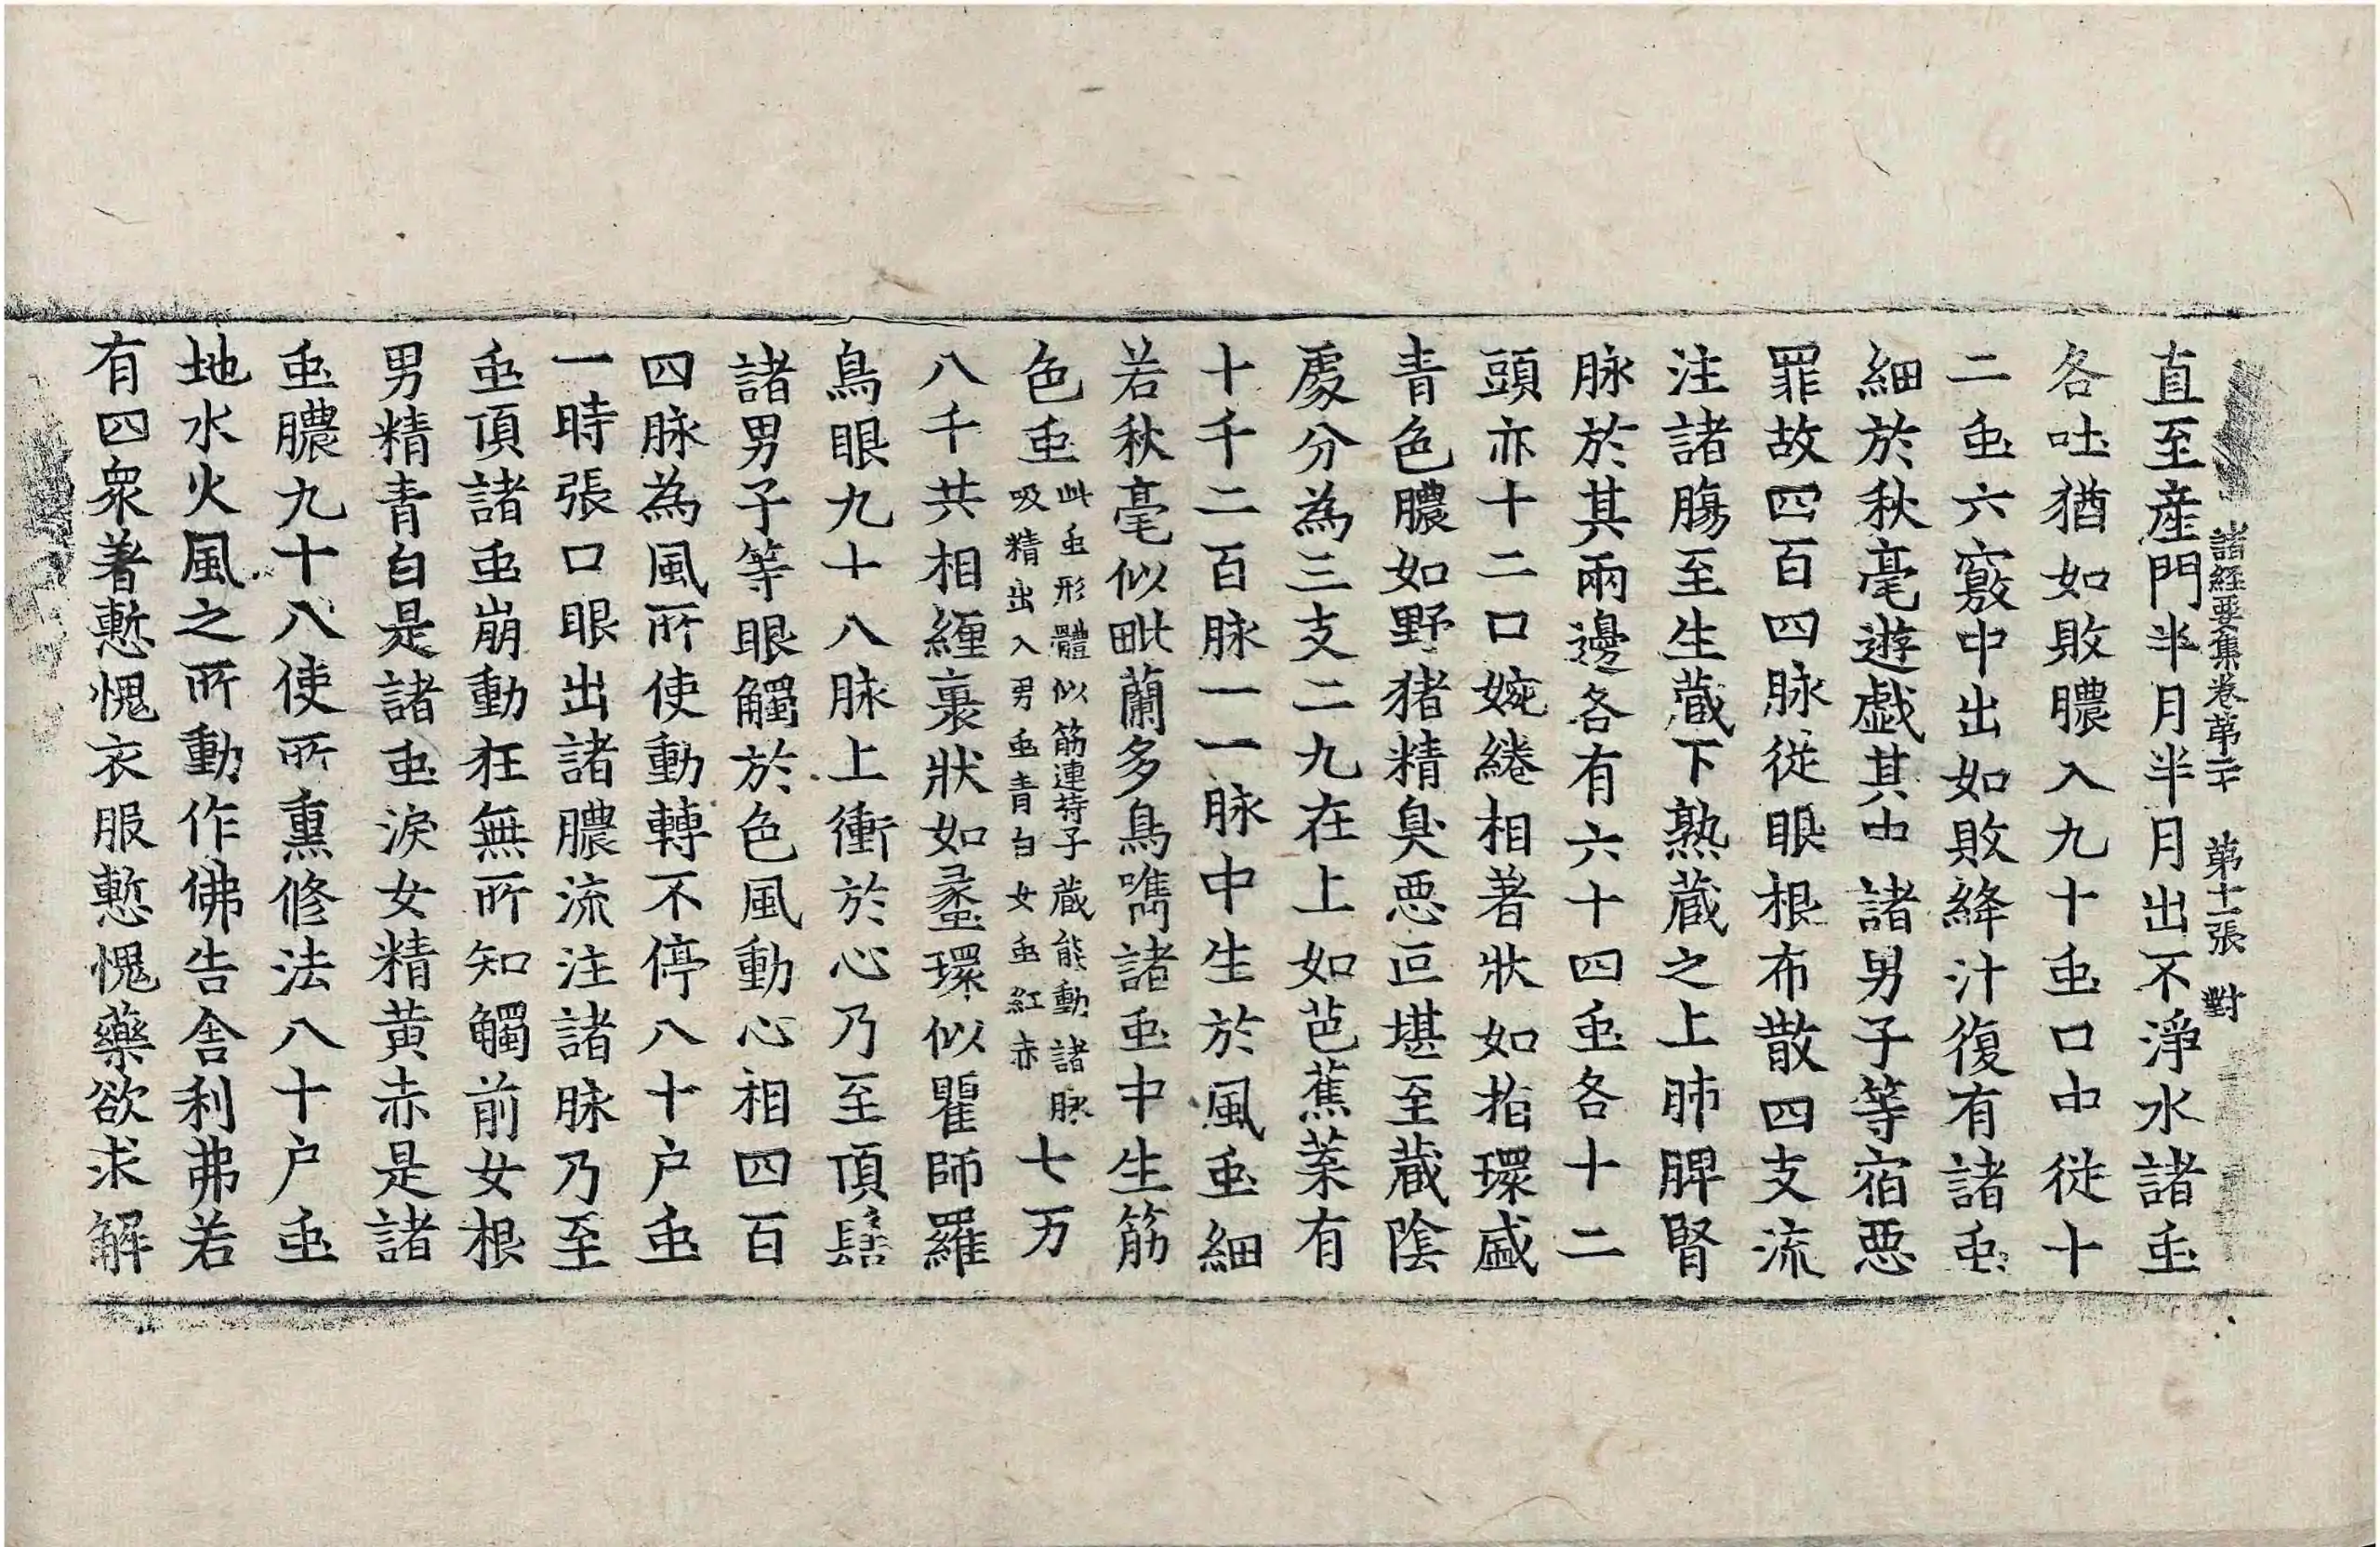 諸經要集卷第二十 第十一張 對
直至産門半月半月出不淨水諸䖝
各吐猶如敗膿入九十䖝口中従十
二䖝六竅中出如敗絳汁復有諸䖝
細於秋毫遊戱其中諸男子等宿惡
罪故四百四脉従眼根布散四支流
注諸膓至生蔵下熟蔵之上肺脾腎
脉於其兩邊各有六十四䖝各十二
頭亦十二口婉綣相著狀如指環盛
青色膿如野猪精臭惡叵堪至蔵陰
處分為三支二九在上如芭蕉葉有
十千二百脉一一脉中生於風䖝細
若秋毫似毗蘭多鳥嘴諸䖝中生筋
色䖝此䖝形體似筋連持子蔵能動諸脉吸精出入男䖝青白女䖝紅赤七万
八千共相纏裹狀如蠡環似瞿師羅
鳥眼九十八脉上衝於心乃至頂髻
諸男子等眼觸於色風動心相四百
四脉為風所使動轉不停八十户䖝
一時張口眼出諸膿流注諸脉乃至
䖝頂諸䖝崩動狂無所知觸前女根
男精青白是諸䖝淚女精黄赤是諸
䖝膿九十八使所熏修法八十户䖝
地水火風之所動作佛告舎利弗若
有四衆著慙愧衣服慙愧藥欲求解